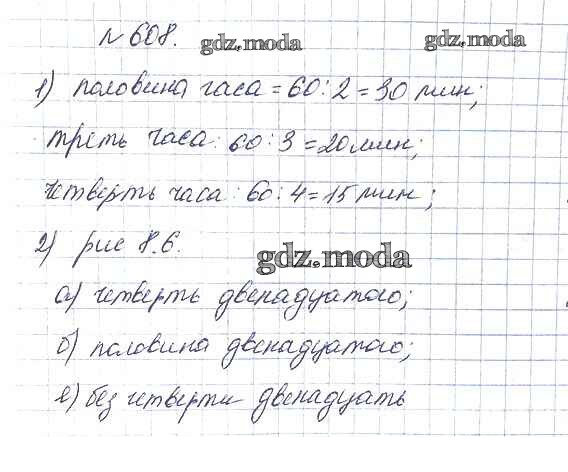 № 608. gdz.moda gdz.moda
1) половина часа = 60 : 2 = 30 мин;
треть часа : 60 : 3 = 20 мин;
четверть часа : 60 : 4 = 15 мин;
2) рис 8.6. gdz.moda
а) четверть двенадцатого;
б) половина двенадцатого;
в) без четверти двенадцать